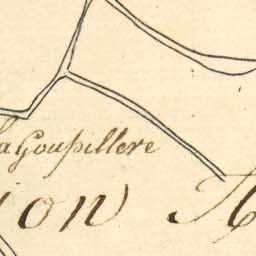 la Goupillere
ion